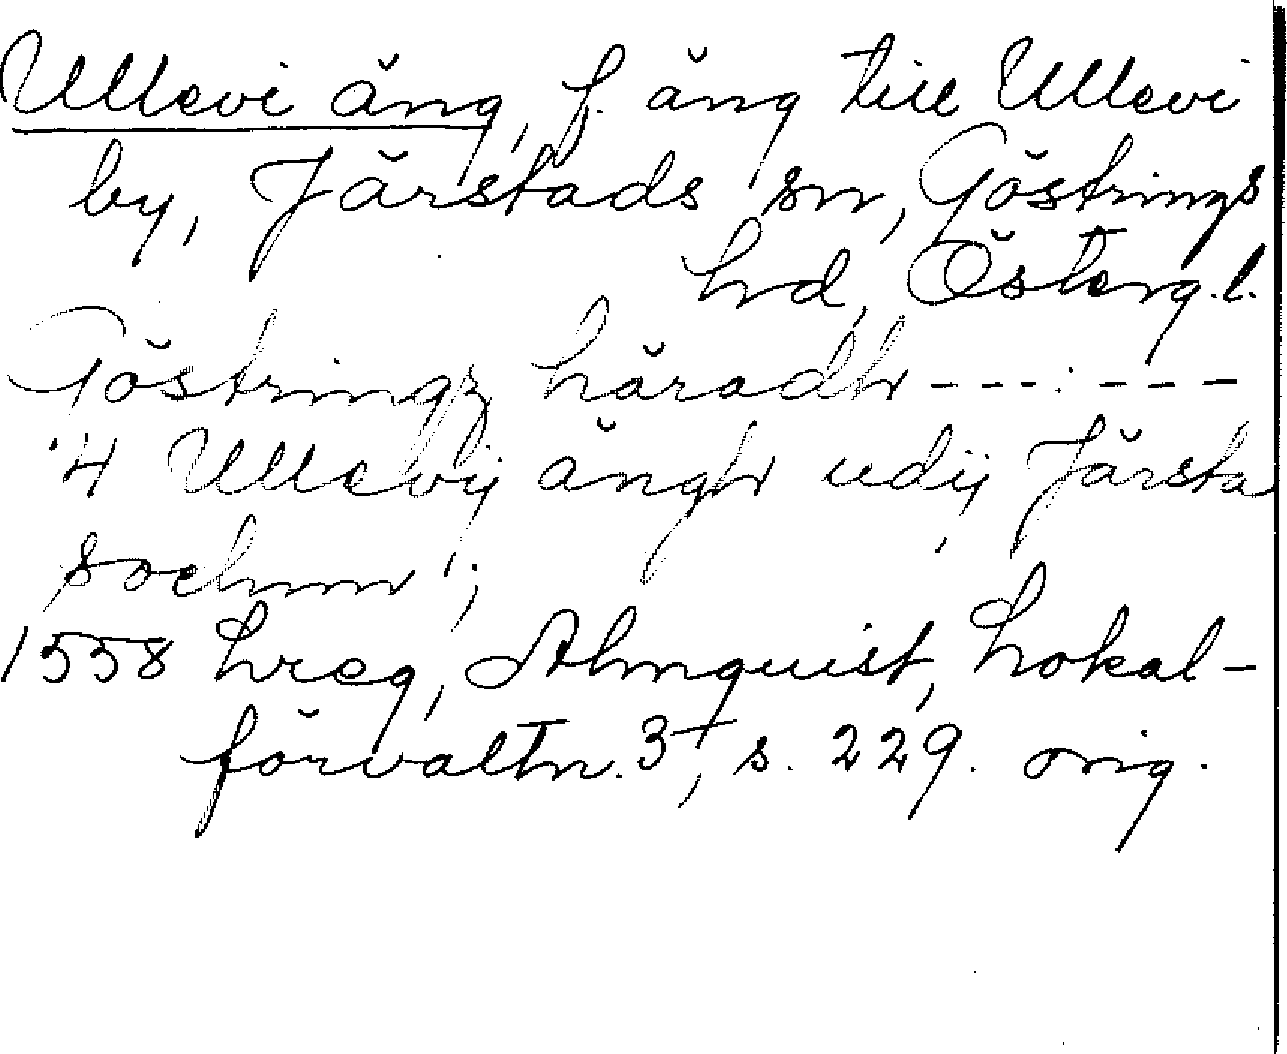 Ullevi äng, f. äng till Ullevi
by, Järstads sn, Göstrings
hd, Österg.l.
Göstringz häradh - - - : - - -
'4 Ullevij ängh udij Järsta
sochnn';
1558 hreg, Almquist, Lokal-
förvaltn. 3, s. 229. orig.